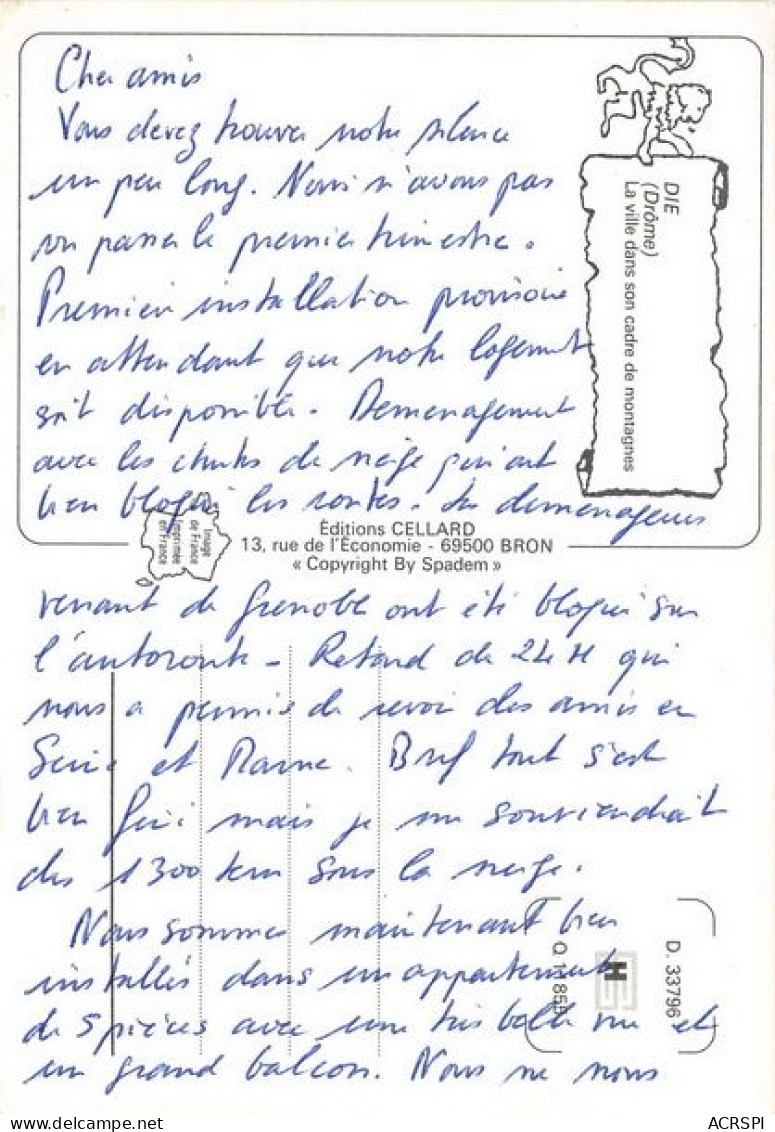 Cher amis
Vous devez trouver notre silence
un peu long. Nous n'avons pas
vu passer le premier trimestre.
Premier installation provisoire
en attendant que notre logement
soit disponible. Demenagement
avec les chutes de neige qui ont
bien bloqué les routes. Les demenageurs
venant de Grenoble ont été bloqué sur
l'autoroute - Retard de 24 H qui
nous a permis de revoir des amis en
Seine et Marne. Bref tout s'est
bien fini mais je me souviendrait
des 1300 km sous la neige.
Nous sommes maintenant bien
installés dans un appartement
de 5 pièces avec une très belle vue et
un grand balcon. Nous ne nous
DIE
(Drôme)
La ville dans son cadre de montagnes
Éditions CELLARD
13, rue de l'Économie - 69500 BRON
« Copyright By Spadem »
Image
de France
Imprimée
en France
D. 33796
ACRSPI